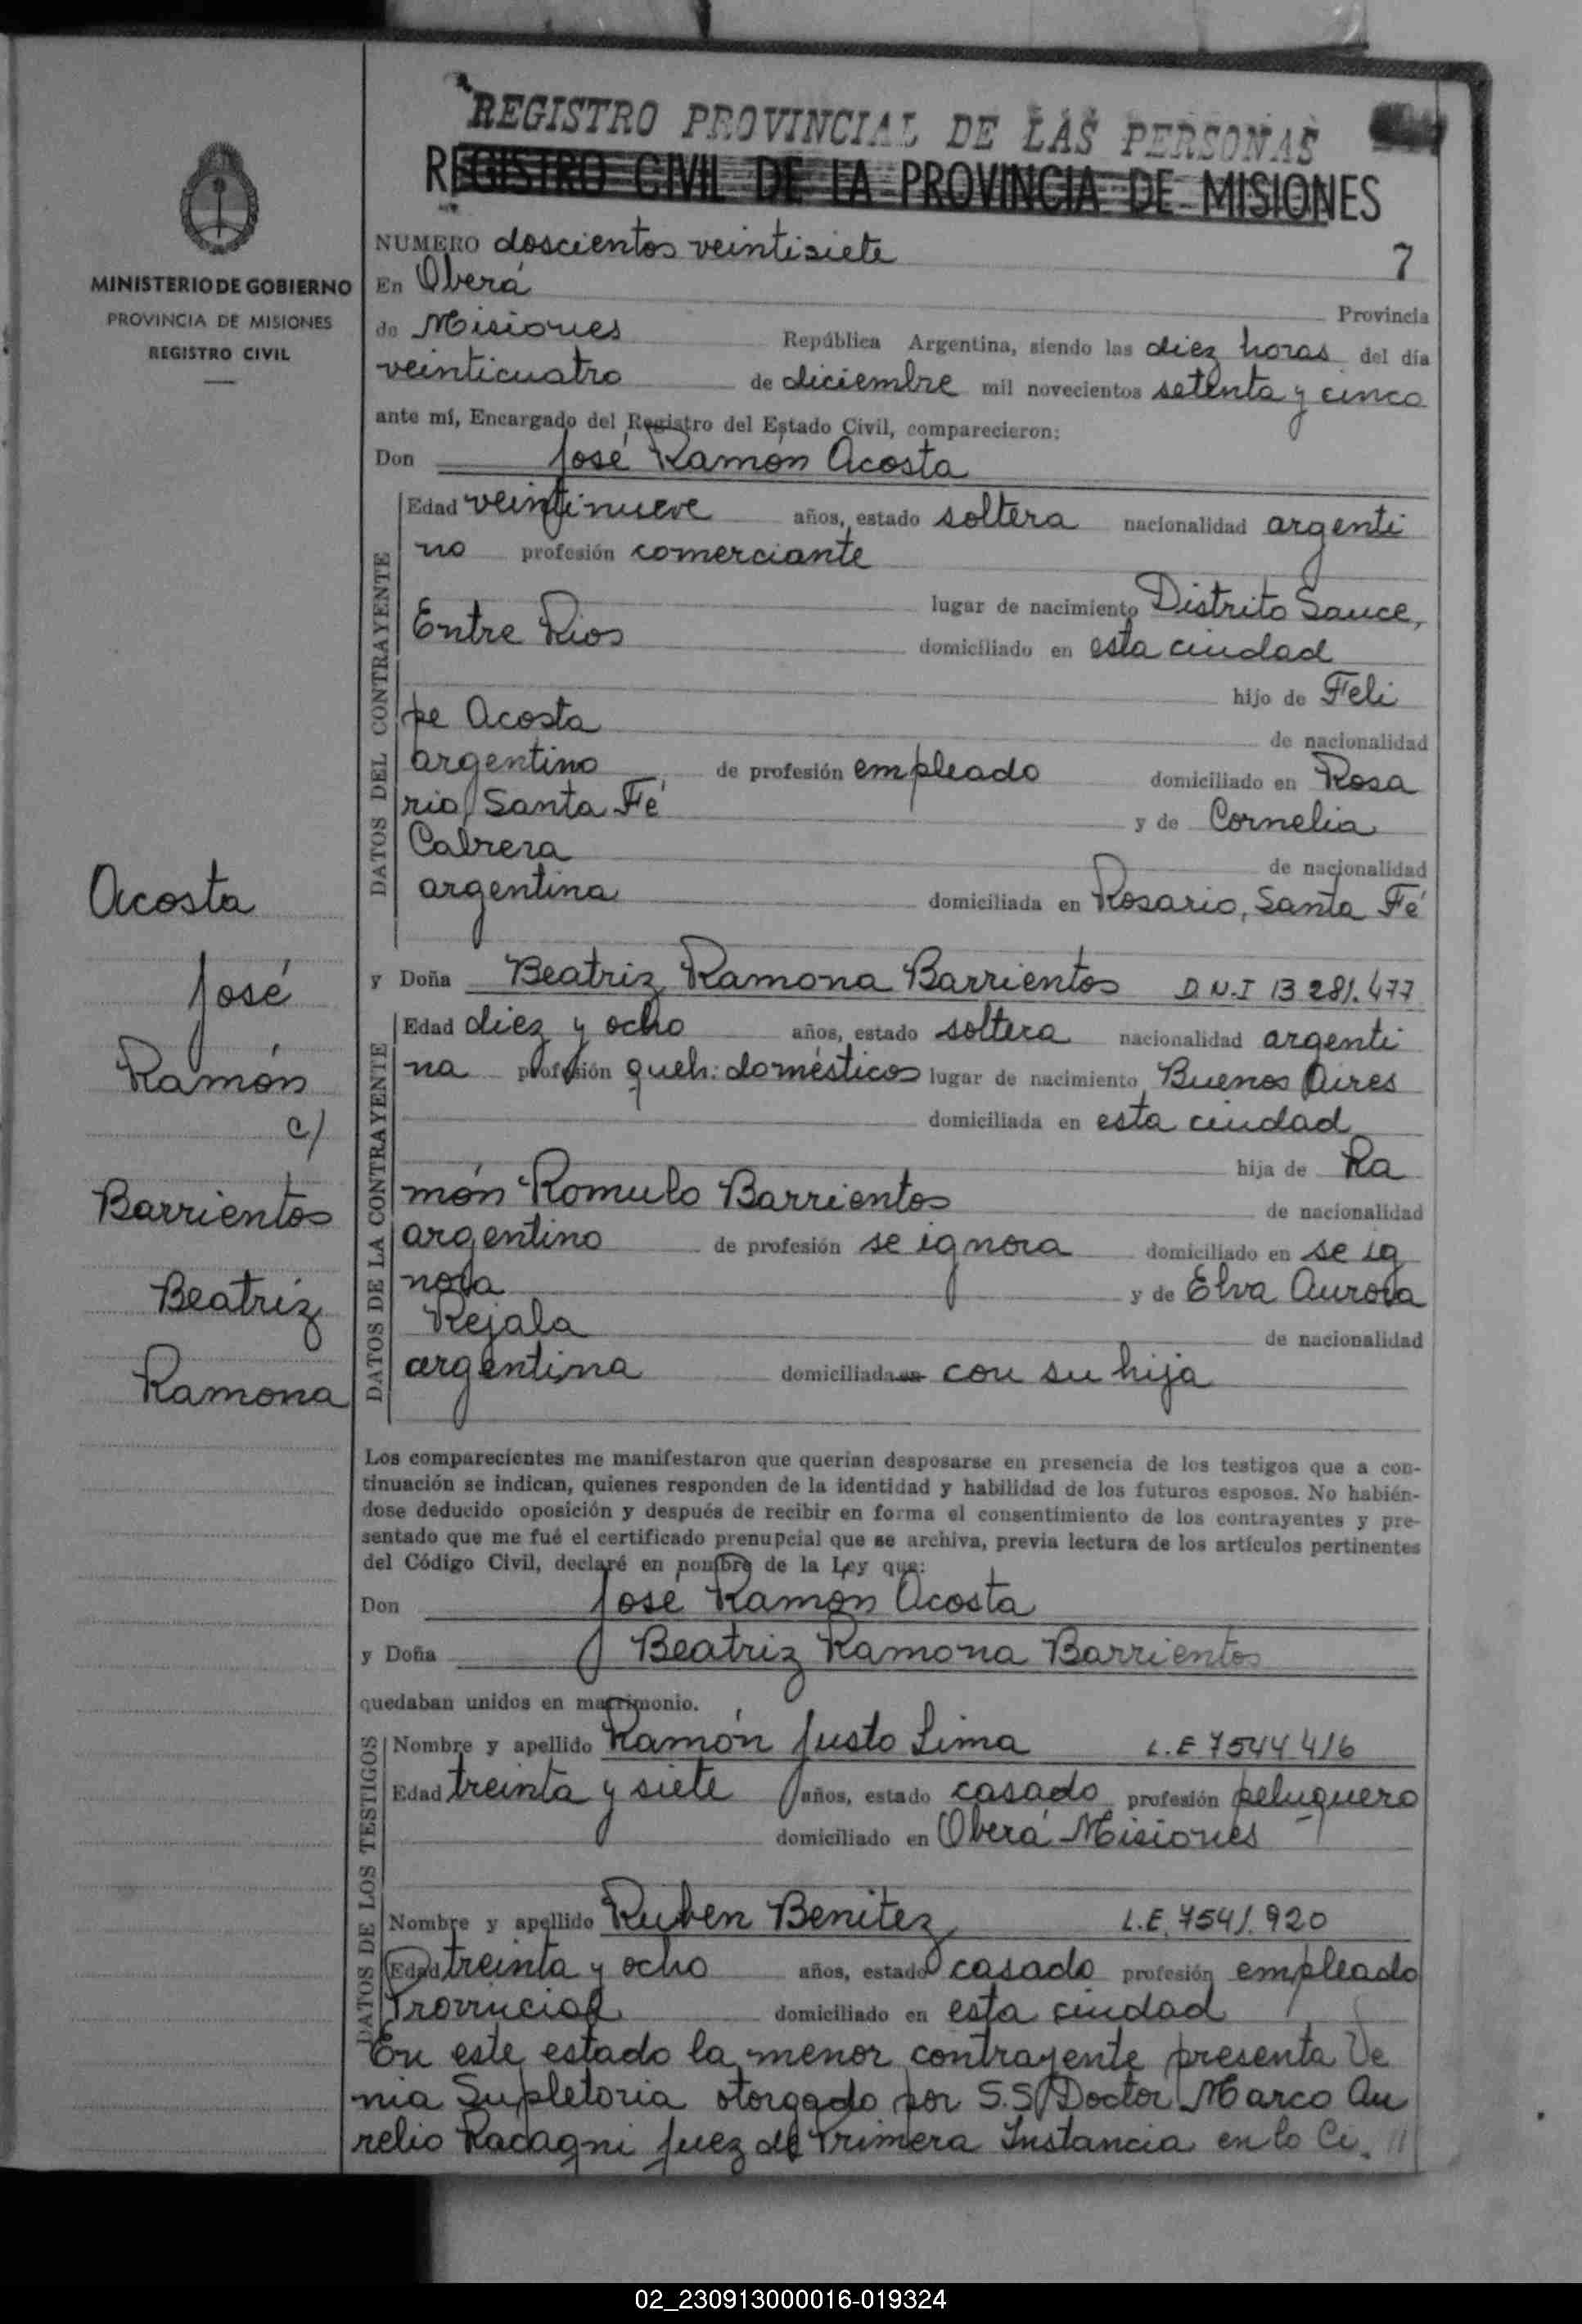 REGISTRO PROVINCIAL DE LAS PERSONAS
REGISTRO CIVIL DE LA PROVINCIA DE MISIONES
MINISTERIO DE GOBIERNO
PROVINCIA DE MISIONES
REGISTRO CIVIL
NUMERO doscientos veintisiete 7
En Oberá Provincia
de Misiones República Argentina, siendo las diez horas del día
veinticuatro de diciembre mil novecientos setenta y cinco
ante mí, Encargado del Registro del Estado Civil, comparecieron:
Don José Ramón Acosta
DATOS DEL CONTRAYENTE
Edad veintinueve años, estado soltera nacionalidad argenti
no profesión comerciante
lugar de nacimiento Distrito Sauce,
Entre Rios domiciliado en esta ciudad
hijo de Feli
pe Acosta de nacionalidad
argentino de profesión empleado domiciliado en Rosa
rio, Santa Fé y de Cornelia
Cabrera de nacionalidad
argentina domiciliada en Rosario, Santa Fé
Acosta
José
Ramón
c/
Barrientos
Beatriz
Ramona
y Doña Beatriz Ramona Barrientos D.N.I 13 281.477
DATOS DE LA CONTRAYENTE
Edad diez y ocho años, estado soltera nacionalidad argenti
na profesión queh: domésticos lugar de nacimiento Buenos Aires
domiciliada en esta ciudad
hija de Ra
món Romulo Barrientos de nacionalidad
argentino de profesión se ignora domiciliado en se ig
nora y de Elva Aurora
Rejala de nacionalidad
argentina domiciliada en con su hija
Los comparecientes me manifestaron que querían desposarse en presencia de los testigos que a con-
tinuación se indican, quienes responden de la identidad y habilidad de los futuros esposos. No habién-
dose deducido oposición y después de recibir en forma el consentimiento de los contrayentes y pre-
sentado que me fué el certificado prenupcial que se archiva, previa lectura de los artículos pertinentes
del Código Civil, declaré en nombre de la Ley que:
Don José Ramón Acosta
y Doña Beatriz Ramona Barrientos
quedaban unidos en matrimonio.
DATOS DE LOS TESTIGOS
Nombre y apellido Ramón Justo Lima L.E 7544416
Edad treinta y siete años, estado casado profesión peluquero
domiciliado en Oberá-Misiones
Nombre y apellido Ruben Benitez L.E. 7541.920
Edad treinta y ocho años, estado casado profesión empleado
Provincial domiciliado en esta ciudad
En este estado la menor contrayente presenta Ve
nia Supletoria otorgado por S.S. Doctor Marco Au
relio Racagni Juez de Primera Instancia en lo Ci. //
02_230913000016-019324